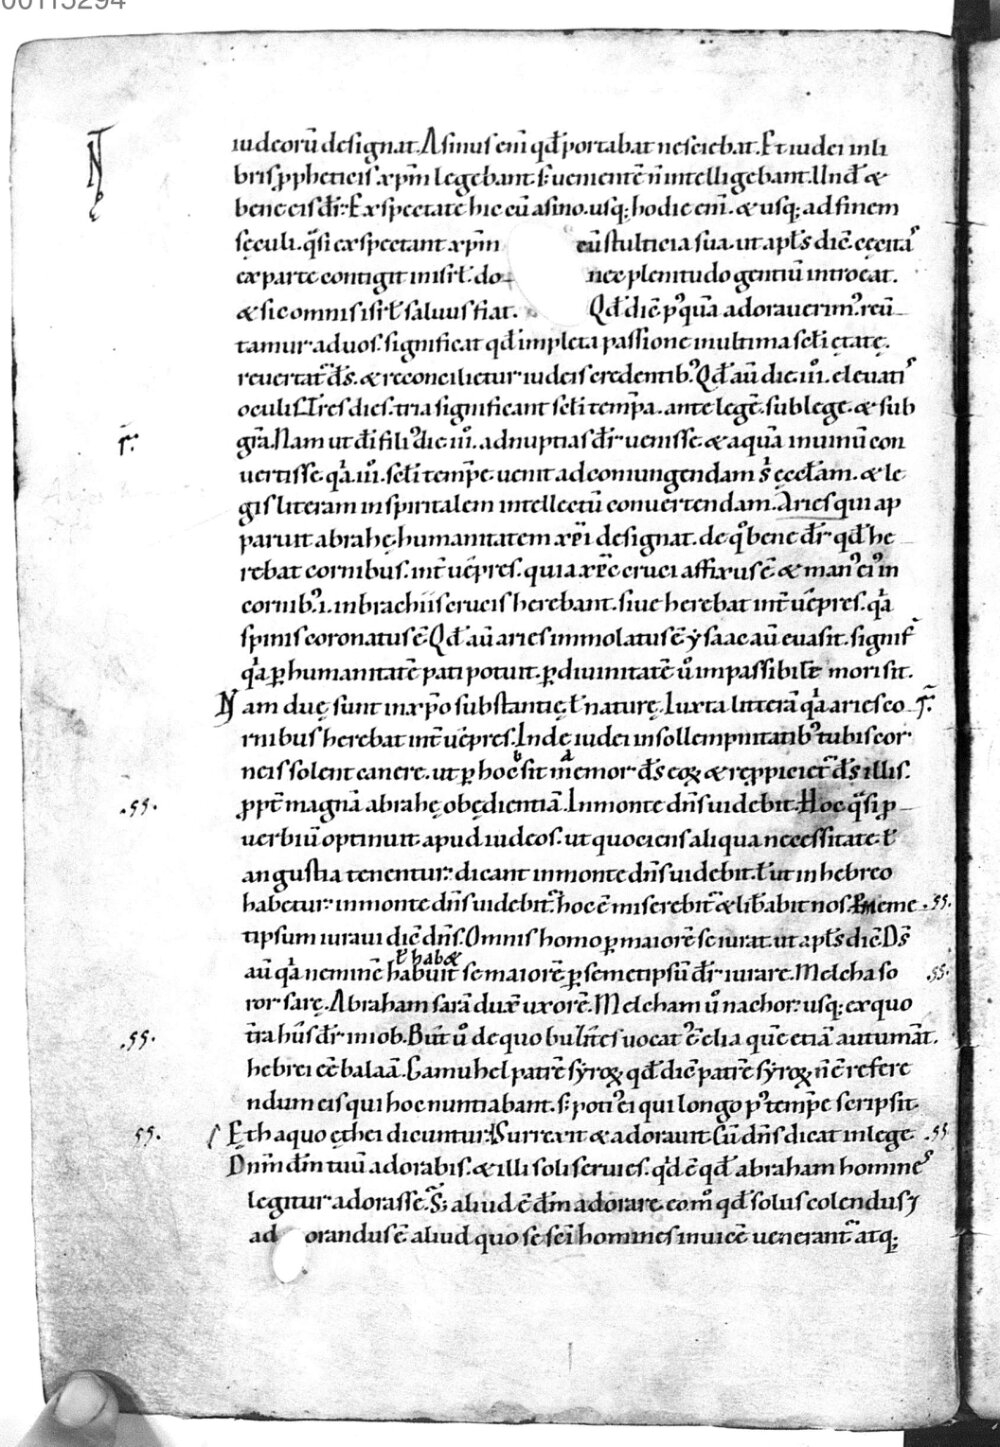 00115294
iudeorū designat. Asinus enī qđ portabat nesciebat. Et iudei in li
bris ꝓpheticis xp̄m legebant. s; uementē n̄ intelligebant. Und̄ &
bene eis dr̄: Exspectate hic cū asino. usq; hodie eni. & usq; ad finem
sęculi. q̄si exspectant xp̄m cū stulticia sua. ut apl̄s dic̄. cęcitaˢ
ex parte contigit in isrl̄. do- nec plenitudo gentiū introeat.
& sic omnis isrl̄ saluus fiat. Qđ dic̄ pꝰquā adorauerimꝰ. reū-
tamur ad uos. significat qđ impleta passione in ultima scl̄i ętatę.
reuertat᷑ d̄s. & reconcilietur iudeis credentibꝰ. Qđ aū die .iii. eleuatiˢ
oculis. Tres dies. tria significant scl̄i temp̄a. ante legē. sub lege. & sub
gr̄a. Nam ut d̄i filiꝰ die .iii. ad nuptias dr̄ uenisse. & aquā in uinū con
r̄:
uertisse. qͣ .iii. scl̄i temp̄e uenit ad coniungendam s eccl̄am. & le
gis literam in spiritalem intellectū conuertendam. Aries qui ap
paruit abrahę. humanitatem xp̄i designat. de qͦ bene dr̄ qđ he-
rebat cornibus. int̄ uep̄res. quia xp̄c cruci affixus ē & manꝰ eiꝰ in
cornibꝰ .i. in brachiis crucis herebant. siue herebat int̄ uep̄res. qͣ
spinis coronatus ē. Qđ aū aries immolatus ē ysaac aū euasit. signif̄
qͣ ꝑ humanitatē pati potuit. ꝑ diuinitatē ů impassibile mori sit.
Nam duę sunt in xp̄o substantię ł naturę. Iuxta litterā qͣ aries co- r̄:
rnibus herebat int̄ uep̄res. Inde iudei in sollempnitatibꝰ tubis cor
neis solent canere. ut ꝑ hoc sit memor d̄s eoꝝ & reppiciet᷑ d̄s illis.
.ss. ꝓpt̄ magnā abrahę obędientiā. In monte dn̄s uidebit. Hoc q̄si ꝓ-
uerbiū optinuit apud iudeos. ut quociens aliqua necessitate ł
angustia tenentur: dicant in monte dn̄s uidebit. ł ut in hebreo
habetur: in monte dn̄s uidebit᷑. hoc ē miserebit᷑ & lib̄abit nos. Ꝑ meme .ss.
tipsum iuraui dic̄ dn̄s. Omnis homo ꝑ maiorē se iurat. ut apl̄s dic̄. D̄s
ł habꝫ
aū qͣ neminē habuit se maiorē ꝑ semetipsū dr̄ iurare. Melcha so .ss.
ror sarę. Abraham sarā dux̄ uxorē. Melcham ů nachor: usq; ex quo
.ss. t̄ra hus dr̄ in iob. But̄ ů de quo buzites uocatꝰ ē elia quē etiā autumāt.
hebrei eē balaā. Camuhel patrē syroꝝ qđ dic̄ patrē syroꝝ n̄ ē refere
ndum eis qui hoc nuntiabant. s; potiꝰ ei qui longo pꝰ temp̄e scripsit.
ss. Eth a quo ęthei dicuntur. Surrexit & adorauit. Cū dn̄s dicat in lege .ss
Dn̄m dm̄ tuū adorabis. & illi soli seruies. qͥd ē qđ abraham homineˢ
legitur adorasse. S; aliud ē dm̄ adorare. eo mͦ qđ solus colendus &
ad orandus ē. aliud quo se sc̄i homines inuicē uenerant᷑ atq;